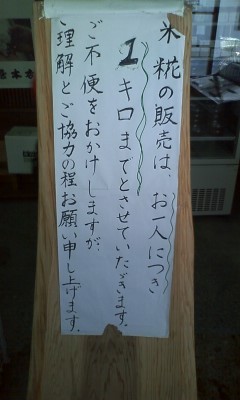 米糀の販売は、お一人につき
1キロまでとさせていただきます。
ご不便をおかけしますが、
ご理解とご協力の程お願い申し上げます。